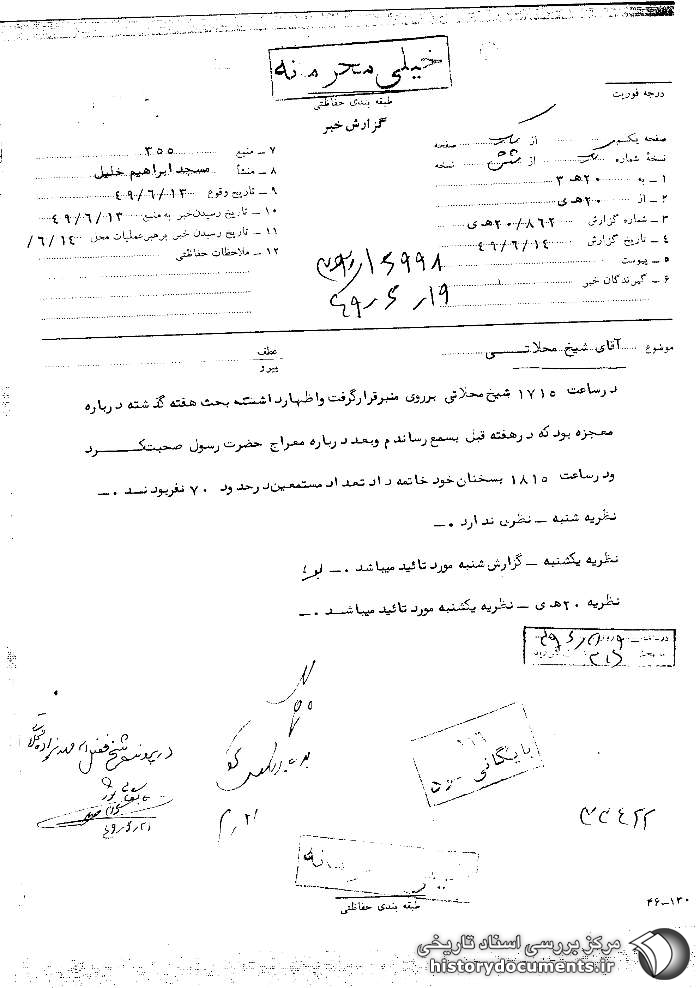 خیلی محرمانه
طبقه بندی حفاظتی
گزارش خبر
درجه فوریت
صفحه یکم از یک صفحه
نسخهٔ شماره از شش نسخه
۱ ـ به ۲۰هـ ۳
۲ ـ از ۲۰هـ ی
۳ ـ شماره گزارش ۲۰/۸۶۲هـ ی
۴ ـ تاریخ گزارش ۴۹/۶/۱۴
۵ ـ پیوست
۶ ـ گیرندگان خبر
۷ ـ منبع ۳۵۵
۸ ـ منشأ مسجد ابراهیم خلیل
۹ ـ تاریخ وقوع ۴۹/۶/۱۳
۱۰ ـ تاریخ رسیدن خبر به منبع ۴۹/۶/۱۳
۱۱ ـ تاریخ رسیدن خبر برهبر عملیات محل ۶/۱۴/
۱۲ ـ ملاحظات حفاظتی
موضوع آقای شیخ محلاتی
عطف
پیرو
درساعت ۱۷۱۵ شیخ محلاتی برروی منبرقرارگرفت واظهارداشتند بحث هفته گذشته درباره
معجزه بود که درهفته قبل بسمع رساندم وبعد درباره معراج حضرت رسول صحبت کرد
ودرساعت ۱۸۱۵ بسخنان خود خاتمه داد تعداد مستمعین درحدود ۷۰ نفربودند ۰ـ
نظریه شنبه ـ نظری ندارد ۰ـ
نظریه یکشنبه ـ گزارش شنبه مورد تائید میباشد ۰ـ
نظریه ۲۰هـ ی ـ نظریه یکشنبه مورد تائید میباشد ۰ـ
بایگانی
طبقه بندی حفاظتی
۴۶-۱۳۰
مرکز بررسی اسناد تاریخی
historydocuments.ir